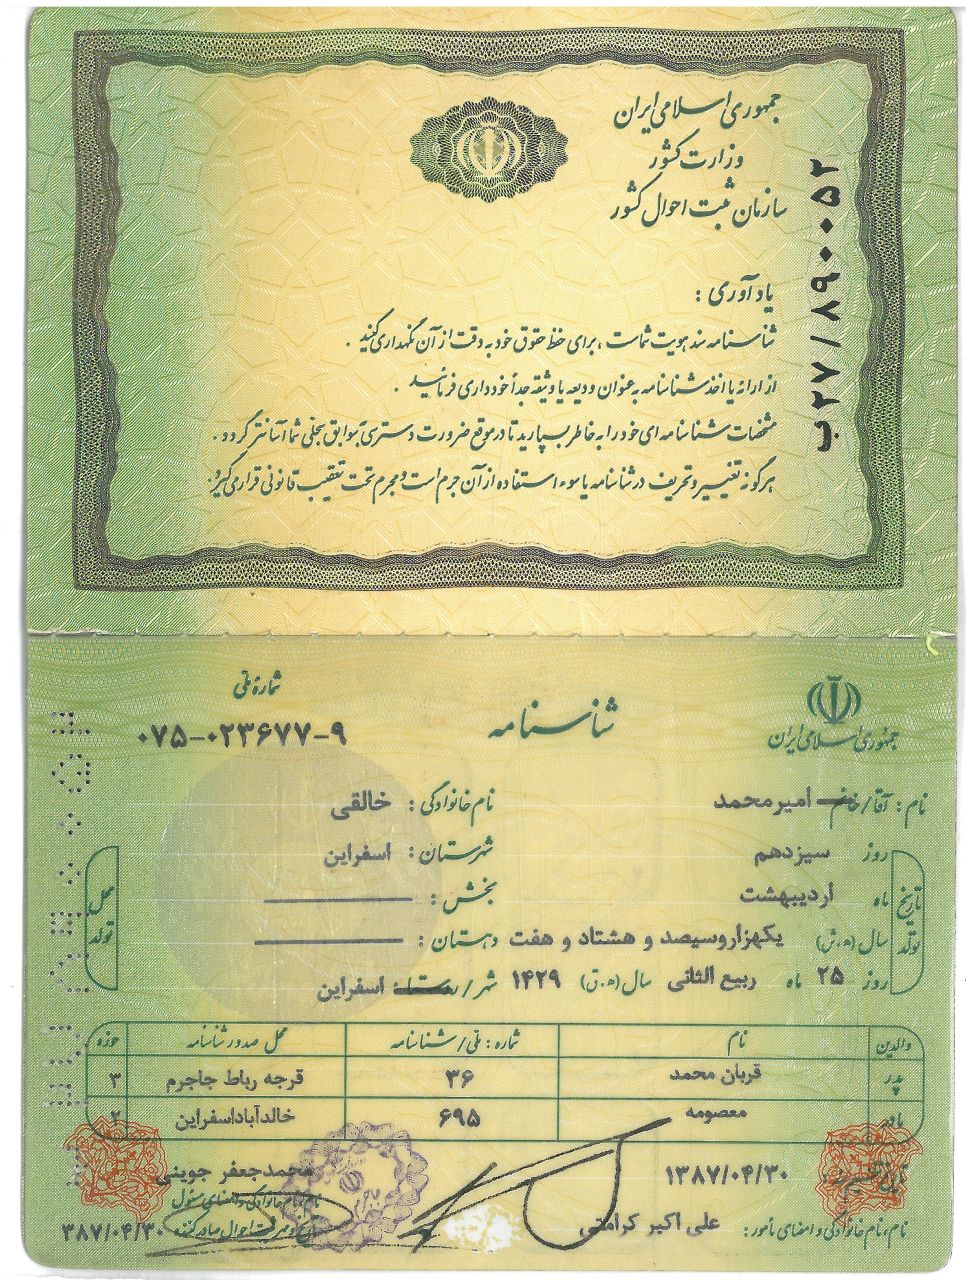 جمهوری اسلامی ایران
وزارت کشور
سازمان ثبت احوال کشور
ب۲۷/۸۹۰۰۵۲
یادآوری :
شناسنامه سند هویت شماست ، برای حفظ حقوق خود به دقت از آن نگهداری کنید .
از ارائه یا اخذ شناسنامه به عنوان ودیعه یا وثیقه جداً خودداری فرمائید .
مشخصات شناسنامه ای خود را به خاطر بسپارید تا در موقع ضرورت دسترسی به سوابق سجلی شما آسانتر گردد .
هرگونه تغییر و تحریف در شناسنامه یا سوء استفاده از آن جرم است و مجرم تحت تعقیب قانونی قرار می گیرد.
جمهوری اسلامی ایران
شناسنامه
شماره ملی
۰۷۵-۰۲۳۶۷۷-۹
نام : آقا/خانم امیرمحمد نام خانوادگی : خالقی
تاریخ تولد
روز سیزدهم شهرستان : اسفراین
محل تولد
ماه اردیبهشت بخش :
سال (ه.ش) یکهزاروسیصد و هشتاد و هفت دهستان :
روز ۲۵ ماه ربیع الثانی سال (ه.ق) ۱۴۲۹ شهر/روستا : اسفراین
والدین نام شماره : ملی/شناسنامه محل صدور شناسنامه حوزه
پدر قربان محمد ۳۶ قرجه رباط جاجرم ۳
مادر معصومه ۶۹۵ خالدآباداسفراین ۲
تاریخ تنظیم : ۱۳۸۷/۰۴/۳۰ محمدجعفر جوینی
نام، نام خانوادگی و امضای مسئول
نام، نام خانوادگی و امضای مأمور : علی اکبر کرامتی
و مهر ثبت احوال صادرکننده ۳۸۷/۰۴/۳۰